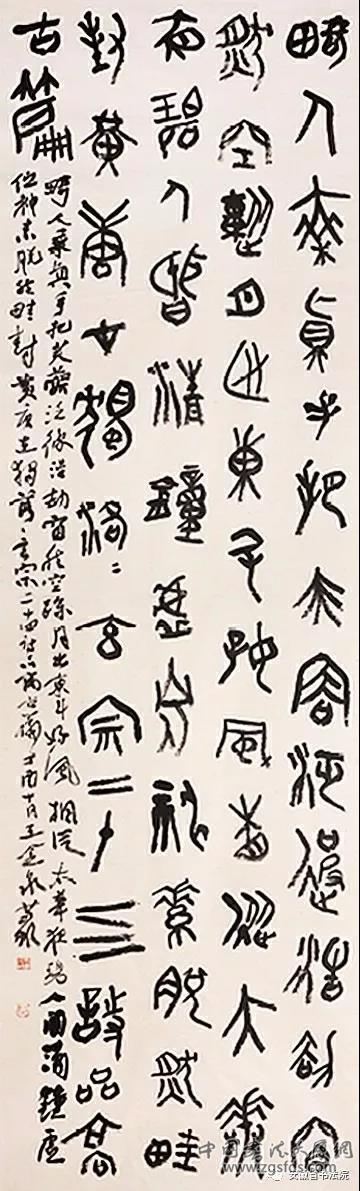 畸人乘真手把夫容泛彼浩劫窅
然空蹤月出東斗好風相從太華
夜碧人聞清鐘虛佇神素脫然畦
封黃唐在獨落=玄宗二十三詩品高
古篇
畸人乘真手把芙蓉泛彼浩劫窅然空蹤月出東斗好風相從太華夜碧人聞清鐘虛
佇神素脫然畦封黃唐在獨落=玄宗二十四詩品高古篇丁酉 月王金泉篆
www.zgsfds.com
安徽省书法院